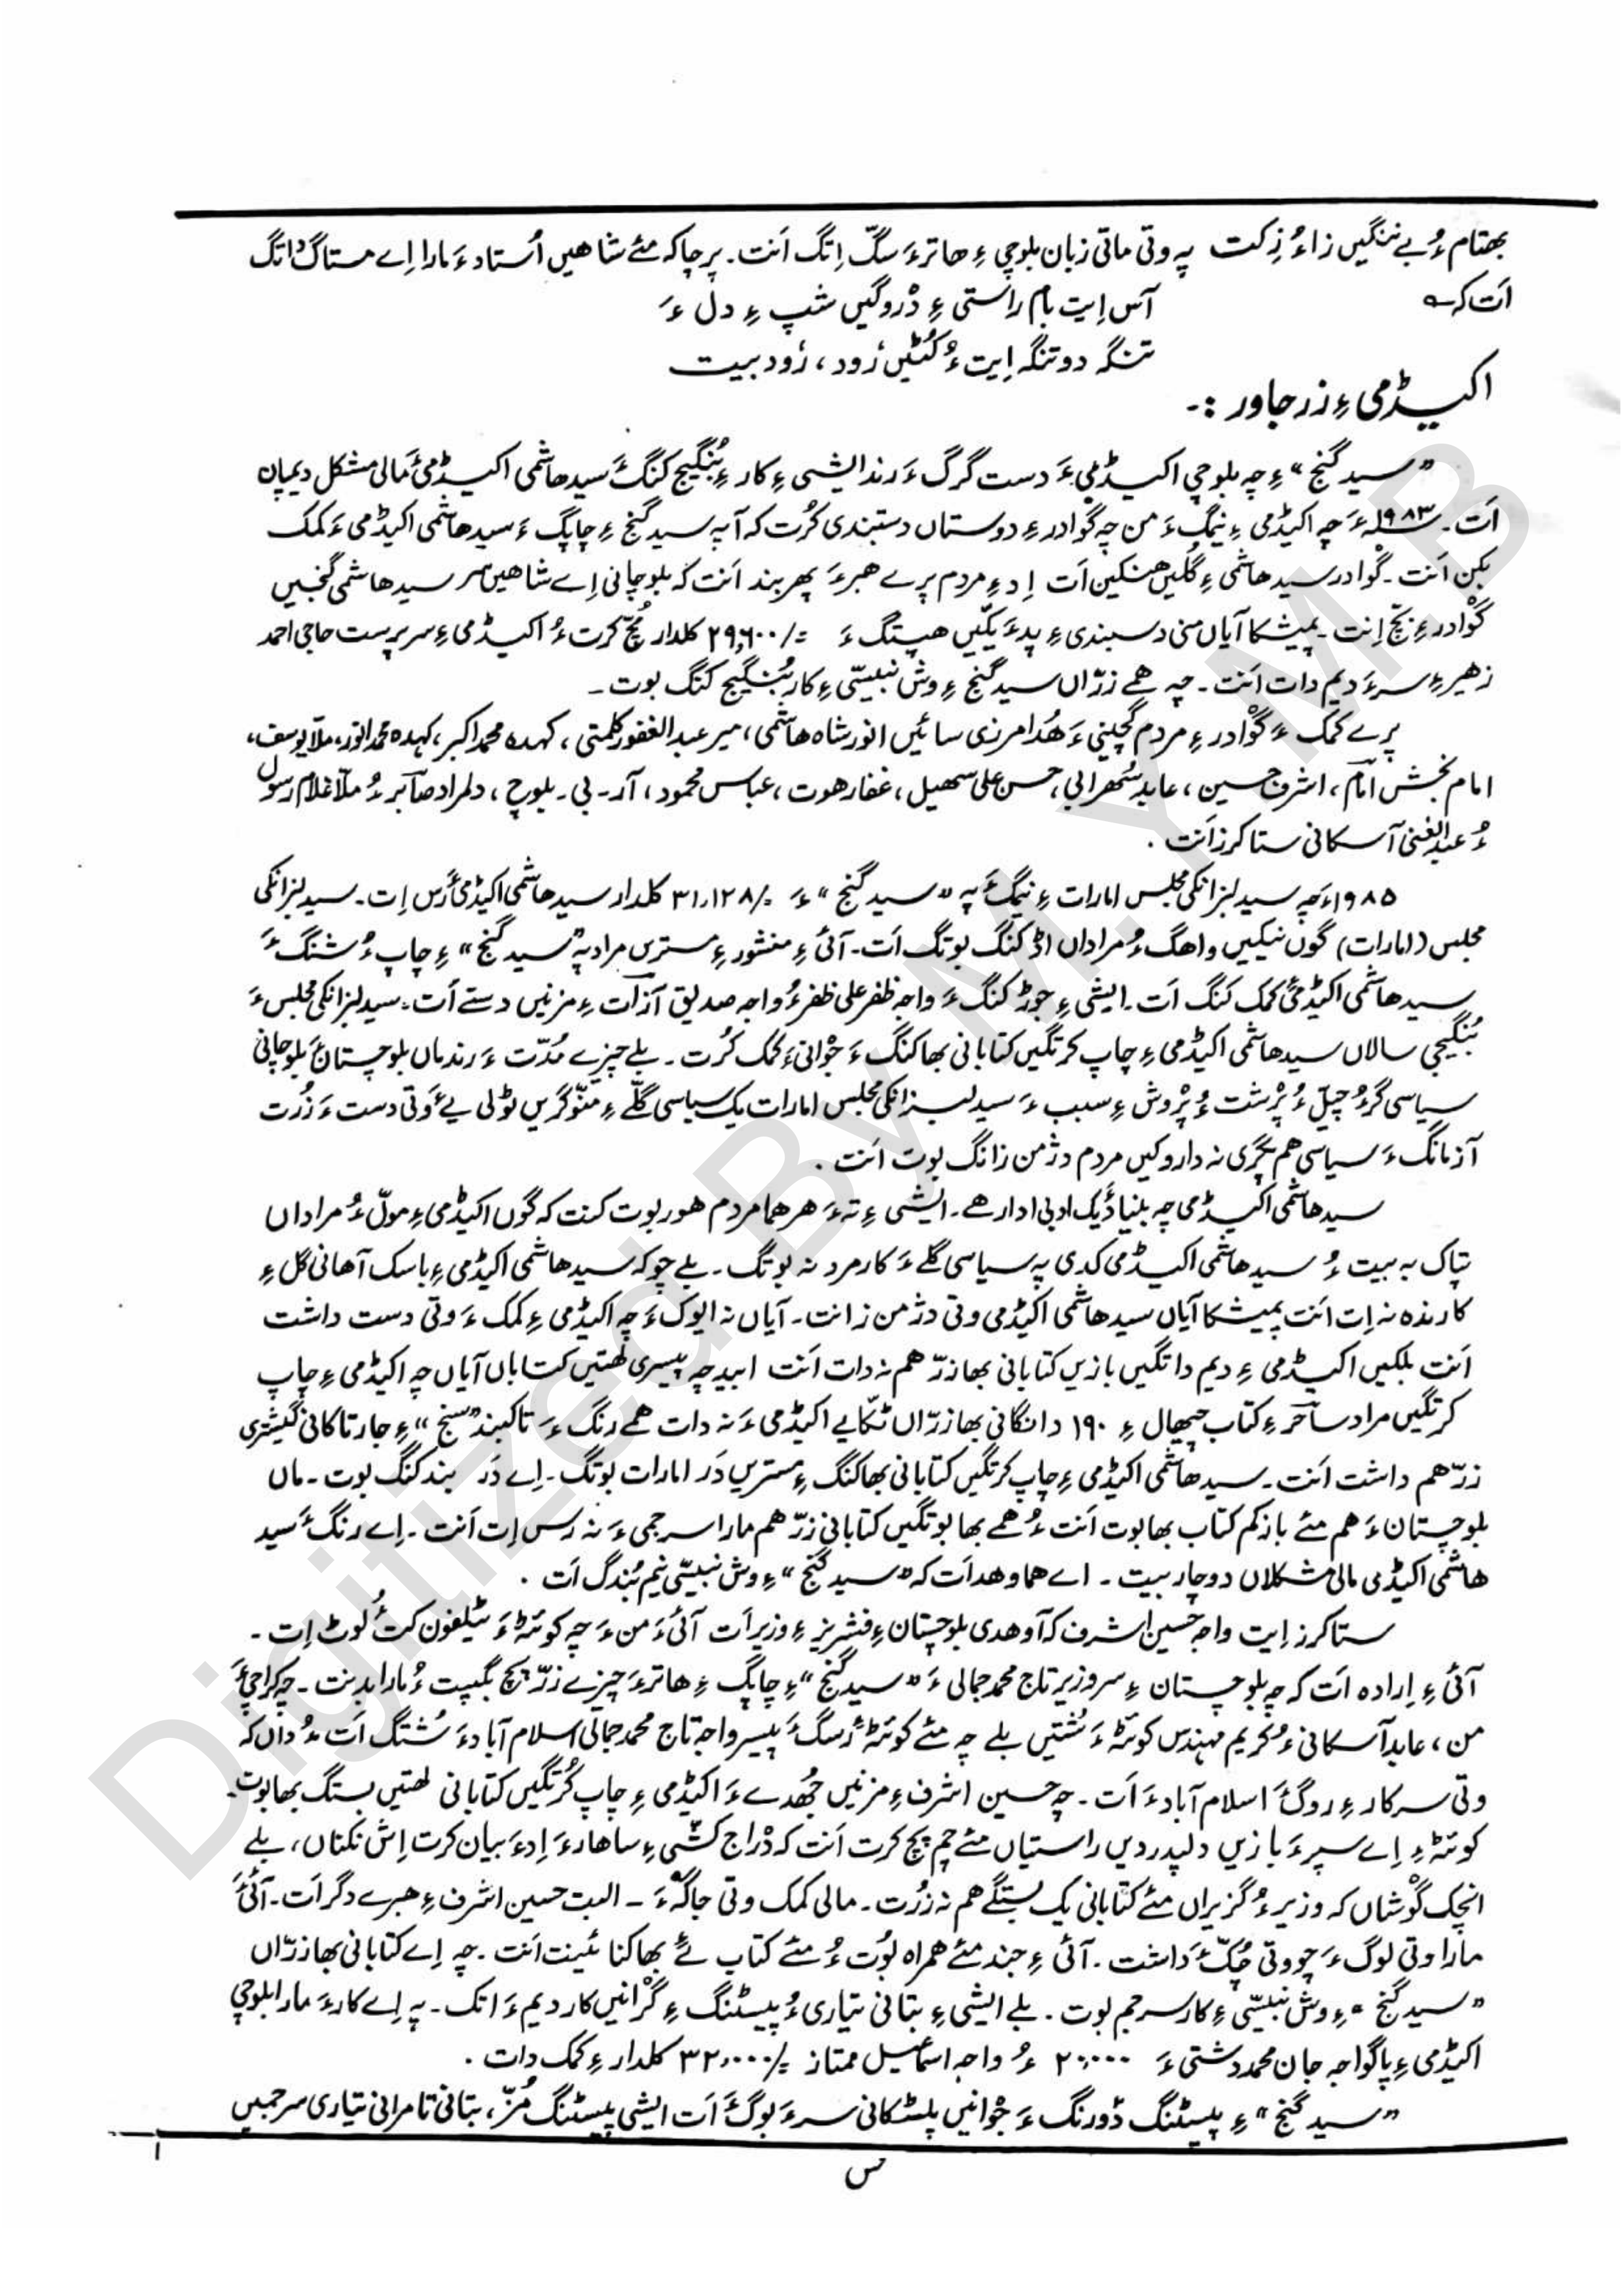 بھتام ءُ بے ننگیں زاءُ زِکت پہ وتی ماتی زبان بلوچی ءِ ھاترءَ سگّ اِتگ اَنت۔ پرچاکہ مئے شاھیں اُستاد ءَ مارا اِے مستاگ داتگ
اَت کہ
آس اِیت بام راستی ءِ دْروگیں شپ ءِ دل ءَ
تنگہ دوتنگہ اِیت ءُ کُٹیں زُود، زُود بیت
اکیڈمی ءِ زر جاور :-
”سید گنج“ ءِ چہ بلوچی اکیڈمی ءَ دست گرگ ءَ رند ایشی ءِ کار ءِ بُنگیج کنگ ءَ سید ھاشمی اکیڈمی ءَ مالی مشکل دیمپان
اَت۔ ۱۹۸۳ء ءَ چہ اکیڈمی ءِ نیمگ ءَ من چہ گوادر ءِ دوستاں دستبندی کُرت کہ آ پہ سید گنج ءِ چاپگ ءَ سید ھاشمی اکیڈمی ءَ کمک
بکن اَنت۔ گوادر سید ھاشمی ءِ گلیں ھنکین اَت اِد ءِ مردم پرے ھبرءَ پھر بند اَنت کہ بلوچانی اِے شاھیں سر سید ھاشمی گنجیں
گوْادر ءِ بچّ اِنت۔ پمیشکا آیاں منی دسبندی ءِ پد ءَ یکّیں ھپتگ ءَ =/۲۹٫۶۰۰ کلدار مُچّ کرت ءُ اکیڈمی ءِ سرپرست حاجی احمد
زھیر ءِ سر ءَ دیم دات اَنت۔ چہ ھمے زرّاں سید گنج ءِ وش نبیسّی ءِ کار بُنگیج کنگ بوت۔
پرے کمک ءَ گوْادر ءِ مردم گچینی ءَ ھُدامرزی سائیں انور شاہ ھاشمی، میر عبدالغفور کلمتی، کہدہ محمد اکبر، کہدہ محمد انور، ملّا یوسف،
امام بخش امام، اشرف حسین، عابد سُھرابی، حسن علی سھیل، غفار ھوت، عباس محمود، آر۔ بی۔ بلوچ، دلمراد صابر ءُ ملّا غلام رسول
ءُ عبدالغنی آسکانی ستا کرز اَنت۔
۱۹۸۵ء چہ سید لبزانکی مجلس امارات ءِ نیمگ ءَ پہ ”سید گنج“ ءَ =/۳۱٫۱۲۸ کلدار سید ھاشمی اکیڈمی ءَ رَس اِت۔ سید لبزانکی
مجلس (امارات) گوں نیکیں واھگ ءُ مراداں اڈّ کنگ بوتگ اَت۔ آئی ءِ منشور ءِ مستریں مراد پہ ”سید گنج“ ءِ چاپ ءُ شنگ ءَ
سید ھاشمی اکیڈمی ءَ کمک کنگ اَت۔ ایشی ءِ جوڑ کنگ ءَ واجہ ظفر علی ظفر ءُ واجہ صدیق آزات ءِ مزنیں دستے اَت۔ سید لبزانکی مجلس ءَ
بُنگیجی سالاں سید ھاشمی اکیڈمی ءِ چاپ کرتگیں کتابانی بھا کنگ ءَ جْوانی ءَ کمک کُرت۔ بلے چیزے مُدّت ءَ رند ماں بلوچستان ءَ بلوچانی
سیاسی گڑ ءُ چیل ءُ پْرُشت ءُ پْرُوش ءِ سبب ءَ سید لبزانکی مجلس امارات یک سیاسی گلّے ءِ منّوگریں ٹولی یے ءَ وتی دست ءَ زُرت
آزمانگ ءَ سیاسی ھم پگری نہ داروکیں مردم دژمن زانگ بوت اَنت۔
سید ھاشمی اکیڈمی چہ بنیاد ءَ یک ادبی ادارھے۔ ایشی ءِ تہ ءَ ھر ھما مردم ھور بوت کنت کہ گوں اکیڈمی ءِ مولّ ءُ مراداں
تپاک بہ بیت ءُ سید ھاشمی اکیڈمی کدی پہ سیاسی گلے ءَ کارمرد نہ بوتگ۔ بلے چوکہ سید ھاشمی اکیڈمی ءِ باسک آھانی گل ءِ
کارندہ نہ اِت اَنت پمیشکا آیاں سید ھاشمی اکیڈمی وتی دژمن زانت۔ آیاں نہ ایوک ءَ چہ اکیڈمی ءِ کمک ءَ وتی دست داشت
اَنت بلکیں اکیڈمی ءِ دیم داتگیں بازیں کتابانی بھا زرّ ھم نہ دات اَنت ابید چہ پیسری لھتیں کتاباں آیاں چہ اکیڈمی ءِ چاپ
کرتگیں مراد ساحر ءِ کتاب چیھال ءِ ۱۹۰ دانگانی بھا زرّاں ٹکّایے اکیڈمی ءَ نہ دات ھمے رنگ ءَ تاکبند ”سنج“ ءِ چار تاکانی گیشتری
زرّ ھم داشت اَنت۔ سید ھاشمی اکیڈمی ءِ چاپ کرتگیں کتابانی بھا کنگ ءِ مستریں دَر امارات بوتگ۔ اِے دَر بند کنگ بوت۔ ماں
بلوچستان ءَ ھم مئے باز کم کتاب بھا بوت اَنت ءُ ھمے بھا بوتگیں کتابانی زرّ ھم مارا سرجمی ءَ نہ رَس اِت اَنت۔ اِے رنگ ءَ سید
ھاشمی اکیڈمی مالی مشکلاں دوچار بیت۔ اے ھما وھد اَت کہ ”سید گنج“ ءِ وش نبیسّی نیم بُندگ اَت۔
ستا کرز اِیت واجہ حسین اشرف کہ آ وھدی بلوچستان ءِ فشریز ءِ وزیر اَت آئی ءَ من ءَ چہ کوئٹہ ءَ ٹیلفون کت ءُ لوٹ اِت۔
آئی ءِ اِرادہ اَت کہ چہ بلوچستان ءِ سروزیر تاج محمد جمالی ءَ ”سید گنج“ ءِ چاپگ ءِ ھاترءَ چیزے زرّ پچ بگیپت ءُ مارا بدنت۔ چہ کراچی ءَ
من، عابد آسکانی ءُ کریم مہندس کوئٹہ ءَ شُتیں بلے چہ مئے کوئٹہ ءَ رسگ ءَ پیسر واجہ تاج محمد جمالی اسلام آباد ءَ شُتگ اَت ءُ داں کہ
وتی سرکار ءِ روگ ءَ اسلام آباد ءَ اَت۔ چہ حسین اشرف ءِ مزنیں جُھدے ءَ اکیڈمی ءِ چاپ کُرتگیں کتابانی لھتیں بستگ بھا بوت۔
کوئٹہ ءِ اِے سپر ءَ بازیں دلپدردیں راستیاں مئے چم پچ کرت اَنت کہ دْراج کشّی ءِ ساھار ءَ اِد ءَ بیان کرت اِش نکناں، بلے
انچک گوْشاں کہ وزیر ءُ گزیراں مئے کتابانی یک بستگے ھم نہ زُرت۔ مالی کمک وتی جاگہ ءَ ۔ البت حسین اشرف ءِ ھبرے دگر اَت۔ آئی ءَ
مارا وتی لوگ ءَ چو وتی چُکّ ءَ داشت۔ آئی ءِ جند مئے ھمراہ بوُت ءُ مئے کتاب ئے بھا کنائینت اَنت۔ چہ اِے کتابانی بھا زرّاں
”سید گنج“ ءِ وش نبیسّی ءِ کار سرجم بوت۔ بلے ایشی ءِ بتانی تیاری ءُ پیسٹنگ ءِ گْرانیں کار دیم ءَ اتک۔ پہ اِے کار ءَ مارا بلوچی
اکیڈمی ءِ پاگواجہ جان محمد دشتی ءَ ۲۰٫۰۰۰ ءُ واجہ اسماعیل ممتاز =/۳۲٫۰۰۰ کلدار ءِ کمک دات۔
”سید گنج“ ءِ پیسٹنگ ڈورنگ ءَ جْوانیں پلسٹکانی سر ءَ بوگ ءَ اَت ایشی پیسٹنگ مُزّ، بتانی تامرانی تیاری سرجمیں
س
Digitized By M.Y.M.B